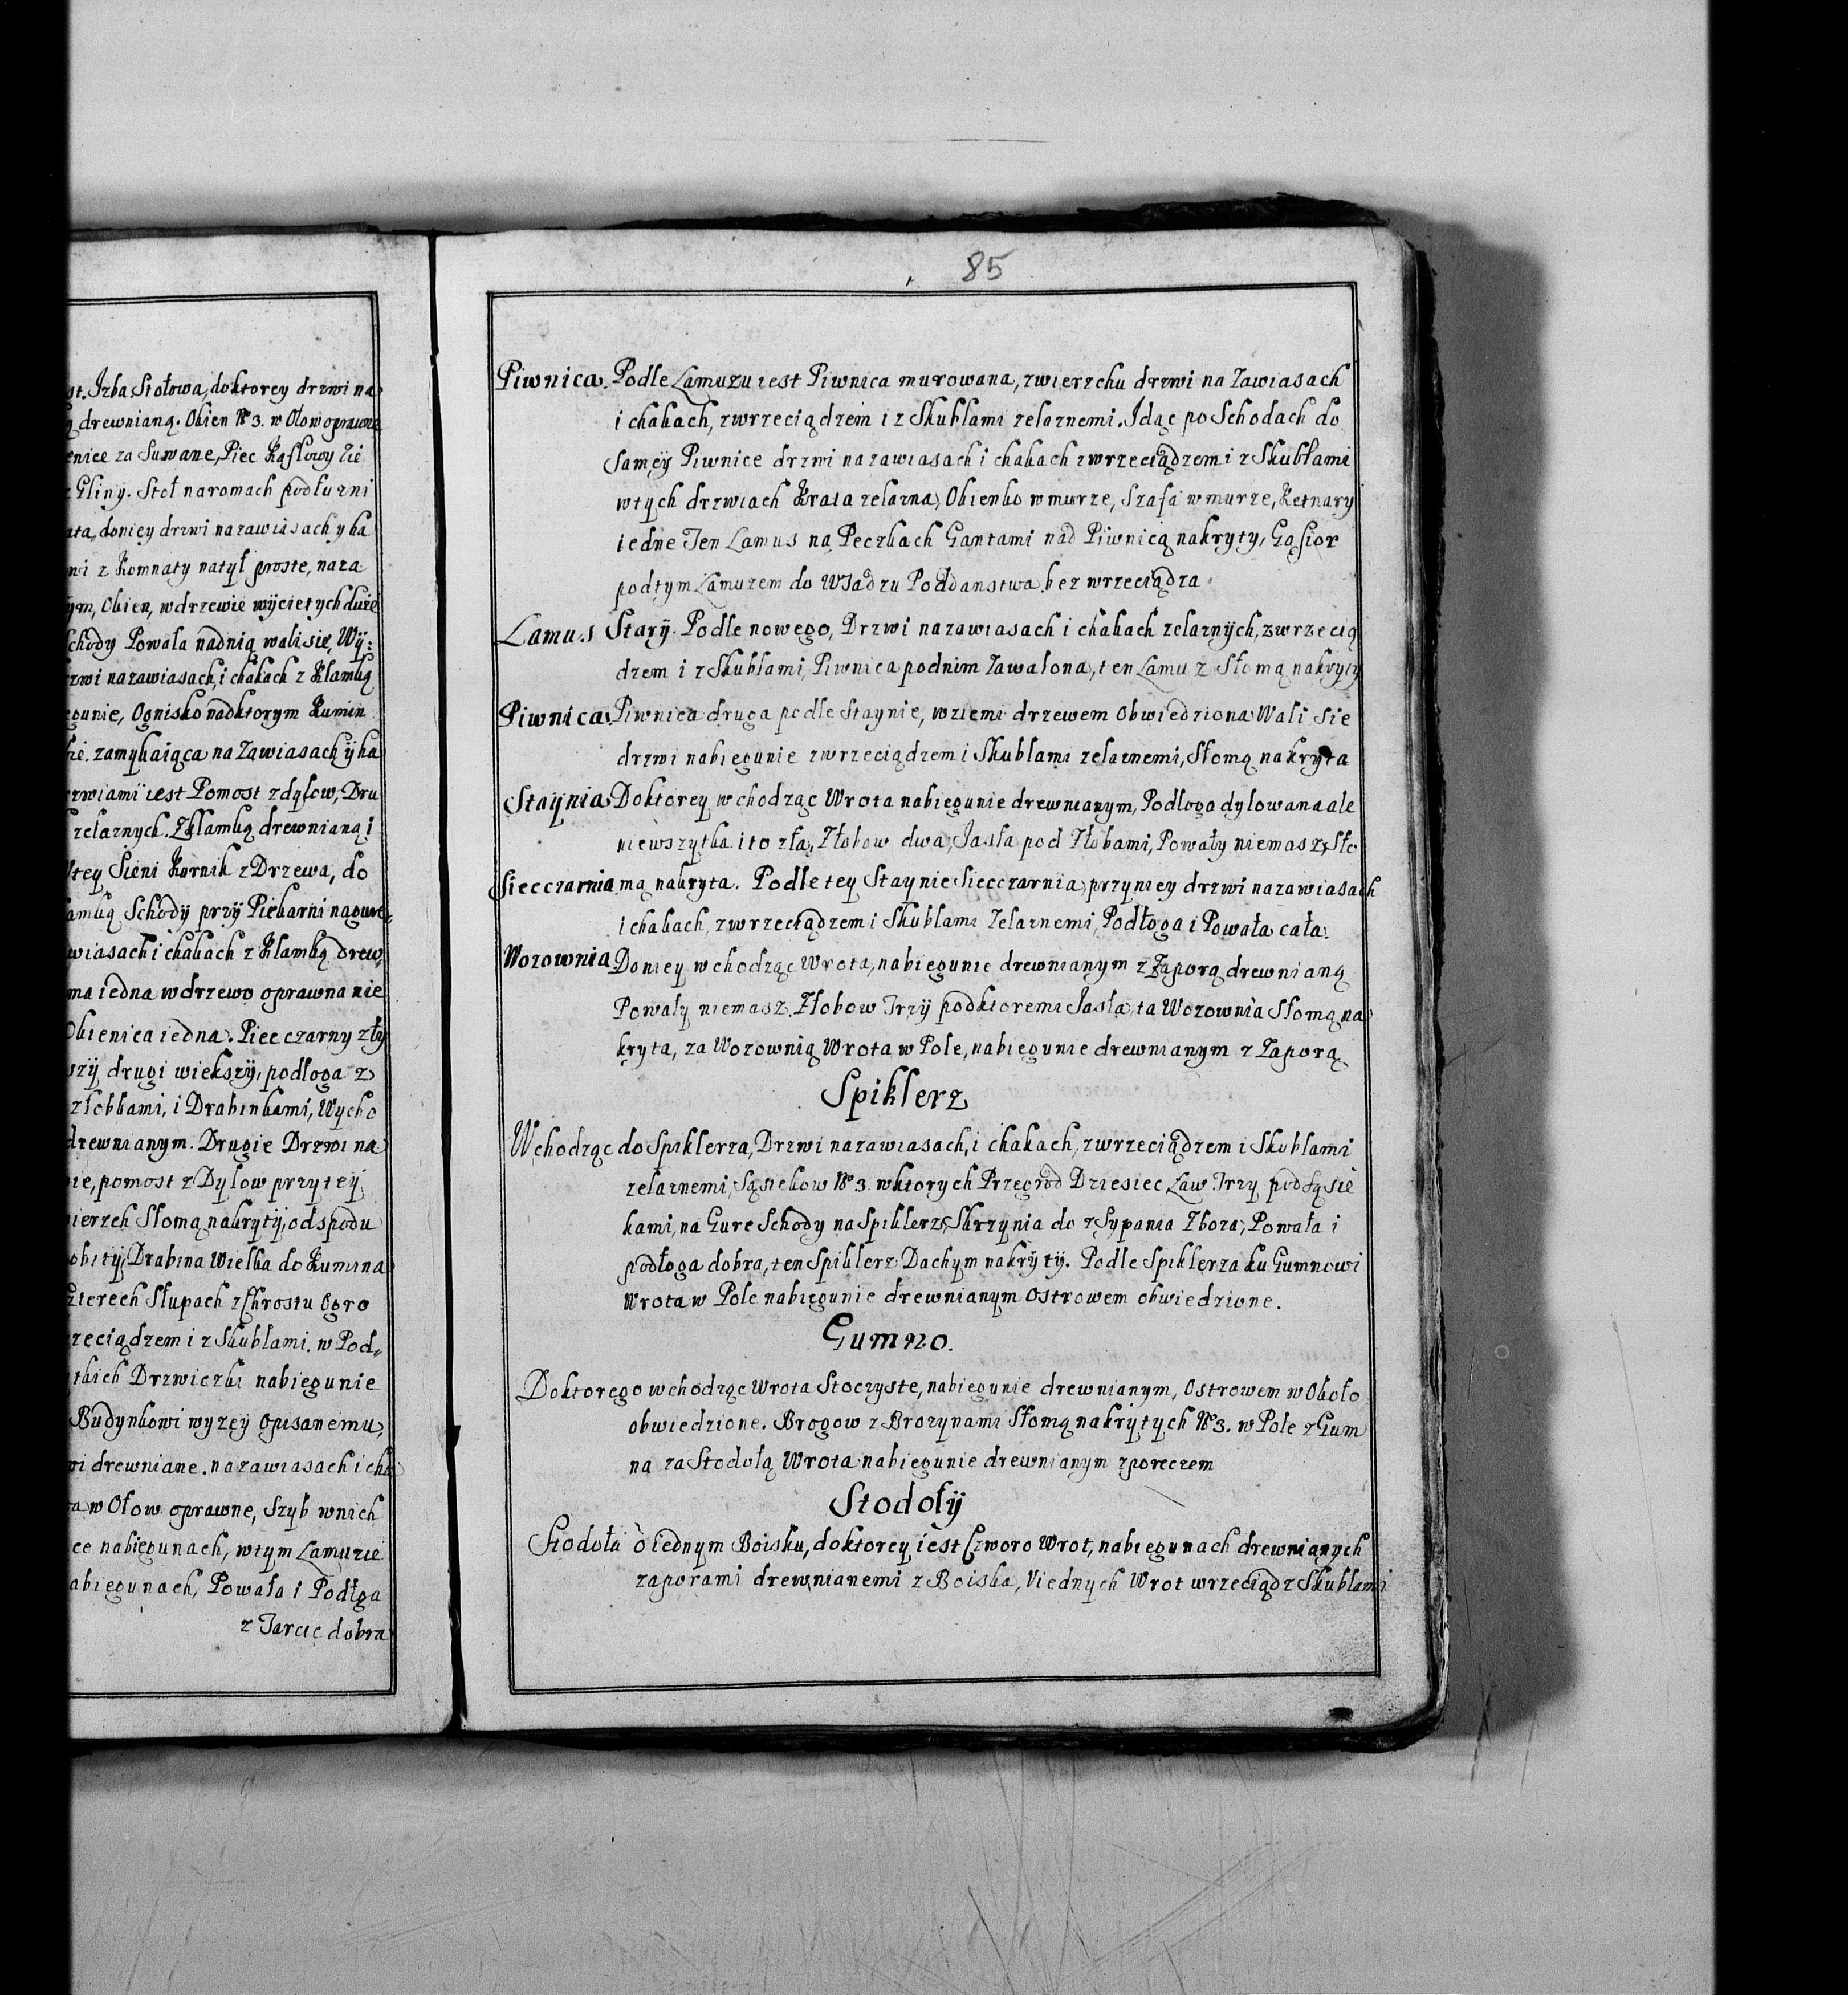 st. Jzba Stołowa, doktorey drzwi na
ą drewnianą. Okien No 3. w Ołow oprawne
enice za Suwane, Piec Kaflowy zie
z Gliny. Stoł naromach podłuzni
ata, doniey drzwi nazawiasach y ha
ni z Komnaty natył proste, naza
ym, Okien, wdrzewie wycietych duże
chody Powała nadnią wali sie, Wÿ:
rzwi nazawiasach, i chakach z Klamką
egunie, Ognisko nadktorym Kumin
zamykaiąca na Zawiasach ÿ ha
rzwiami iest Pomost zdylow, Dru
zelaznych. Zklamką drewnianą i
tey Sieni Kurnik z Drzewa, do
amką Schody przÿ Piekarni nagure
wiasach i chakach z Klamką drew,
ma iedna w drzewo oprawna nie
Okienica iedna. Piec czarny zły
szÿ drugi wiekszÿ, podłoga z
złobkami, i Drabinkami, Wycho
drewnianym. Drugie Drzwi na
ie, pomost z Dylow przytey
ierzch Słomą nakrytÿ, od spodu
obitÿ, Drabina Wielka do Kumina
Czterech Słupach z Chrostu Ogro
rzeciądzem i z Skublami. w Pod,,
tkich Drzwiczki nabiegunie
Budynkowi wyzeÿ Opisanemu,
wi drewniane. nazawiasach i cha
ta w Ołow oprawne, Szyb wnich
ce nabiegunach, wtym Lamuzie
abiegunach, Powała i Podłga
z Tarcic dobra
85
Piwnica. Podle Lamuzu iest Piwnica murowana, zwierzchu drzwi na Zawiasach
i chakach, zwrzeciądzem i z Skublami zelaznemi. Jdąc po Schodach do
Sameÿ Piwnice drzwi nazawiasach i chakach zwrzeciądzem i z Skubłami
wtych drzwiach Krata zelazna, Okienko w murze, Szafa w murze, Ketnary
iedne Ten Lamus na Peczkach Gantami nad Piwnicą nakryty, Gąsior
podtym Lamuzem do Wsadzu Poddanstwa bez wrzeciądza.
Lamus Starÿ. Podle nowego, Drzwi nazawiasach i chakach zelaznÿch, zwrzecią
dzem i z Skublami, Piwnica podnim Zawalona, ten Lamuz Słomą nakryty
Piwnica. Piwnica druga podle Staynie, wziemi drzewem Obwiedziona Wali sie
drzwi nabiegunie zwrzeciądzem i Skublami zelaznemi, Słomą nakryta
Staÿnia Doktorey wchodząc Wrota nabiegunie drewnianym, Podloga dylowana ale
niewszytka i to zła, Złobow dwa, Jasła pod Złobami, Powały niemasz, Sło
Siecczarnia mą nakryta. Podle tey Staynie Siecczarnia, przyniey drzwi nazawiasach
i chakach, zwrzeciądzem i Skublami Zelaznemi, Podłoga i Powała cała.
Wozownia Doniey wchodząc Wrota, nabiegunie drewnianym z Zaporą drewnianą
Powały niemasz. Złobow Trzÿ podktoremi Jasła, ta Wozownia Słomą na
kryta, za Wozownią Wrota w Pole, nabiegunie drewnianym z Zaporą
Spiklerz
Wchodząc do Spiklerza, Drzwi nazawiasach, i chakach, zwrzeciądzem i Skublami
zelaznemi, Sąsiekow No 3. wktorych Przegrod Dziesiec Law Trzy pod Sąsie
kami, na Gure Schody na Spiklerz, Skrzynia do zSypania Zboza, Powała i
podłoga dobra, ten Spiklerz Dachym nakrÿtÿ. Podle Spiklerza ku Gumnowi
Wrota w Pole nabiegunie drewnianym Ostrowem obwiedzione.
Gumno.
Doktorego wchodząc Wrota Stoczyste, nabiegunie drewnianym, Ostrowem wOkoło
obwiedzione. Brogow z Brozynami Słomą nakrÿtych No 3. w Pole z Gum
na za Stodołą Wrota nabiegunie drewnianym zporeczem
Stodołÿ
Stodoła o iednym Boisku, doktorey iest Czworo Wrot, nabiegunach drewnianych
zaporami drewnianemi z Boiska, Uiednych Wrot wrzeciądz Skublami